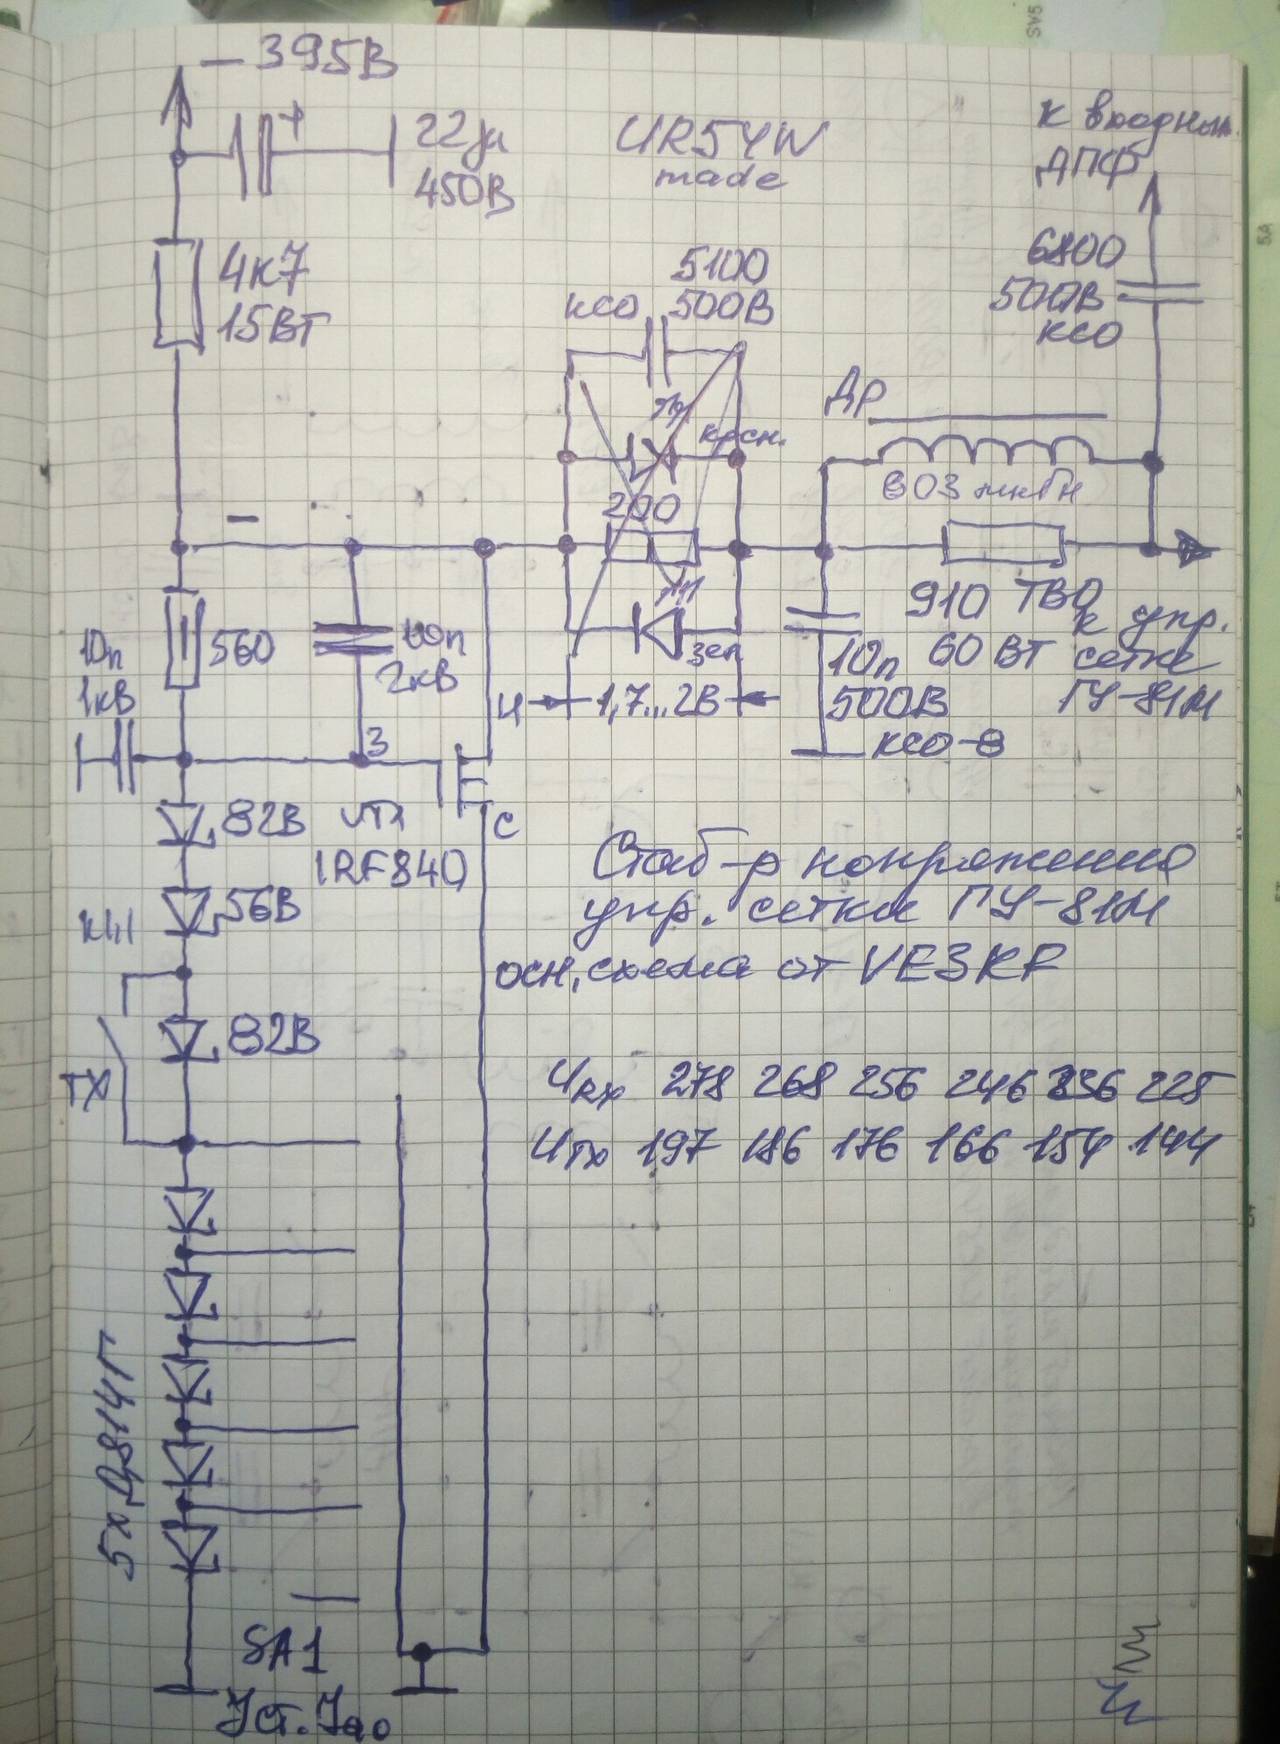 – 395В
22μ
450В
UR5YW
made
к входным
ДПФ
4к7
15Вт
5100
500В
ксо
6800
500В
ксо
Др
крсн.
200
803 мкГн
–
560
10п
1кВ
10п
2кВ
зел
910 ТВО
60 Вт
к упр.
сетке
ГУ-81М
И
1,7...2В
10п
500В
ксо-8
З
82В
VT1
IRF840
С
56В
82В
ТХ
Стаб-р напряжения
упр. сетки ГУ-81М
осн. схема от VE3KF
URX 278 268 256 246 236 225
UTX 197 186 176 166 154 144
5х Д814Г
SA1
Уст.